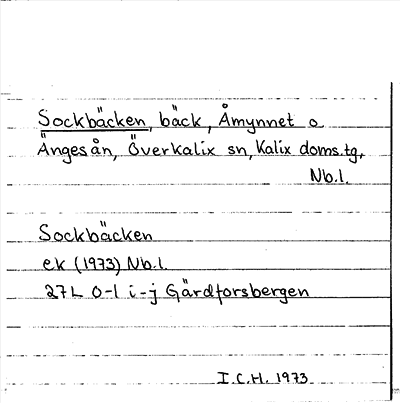 Sockbäcken, bäck, Åmynnet o
Ängesån, Överkalix sn, Kalix doms.tg,
Nb.l.
Sockbäcken
ek (1973) Nb.l.
27L 0-1 i-j Gärdforsbergen
I.C.H. 1973